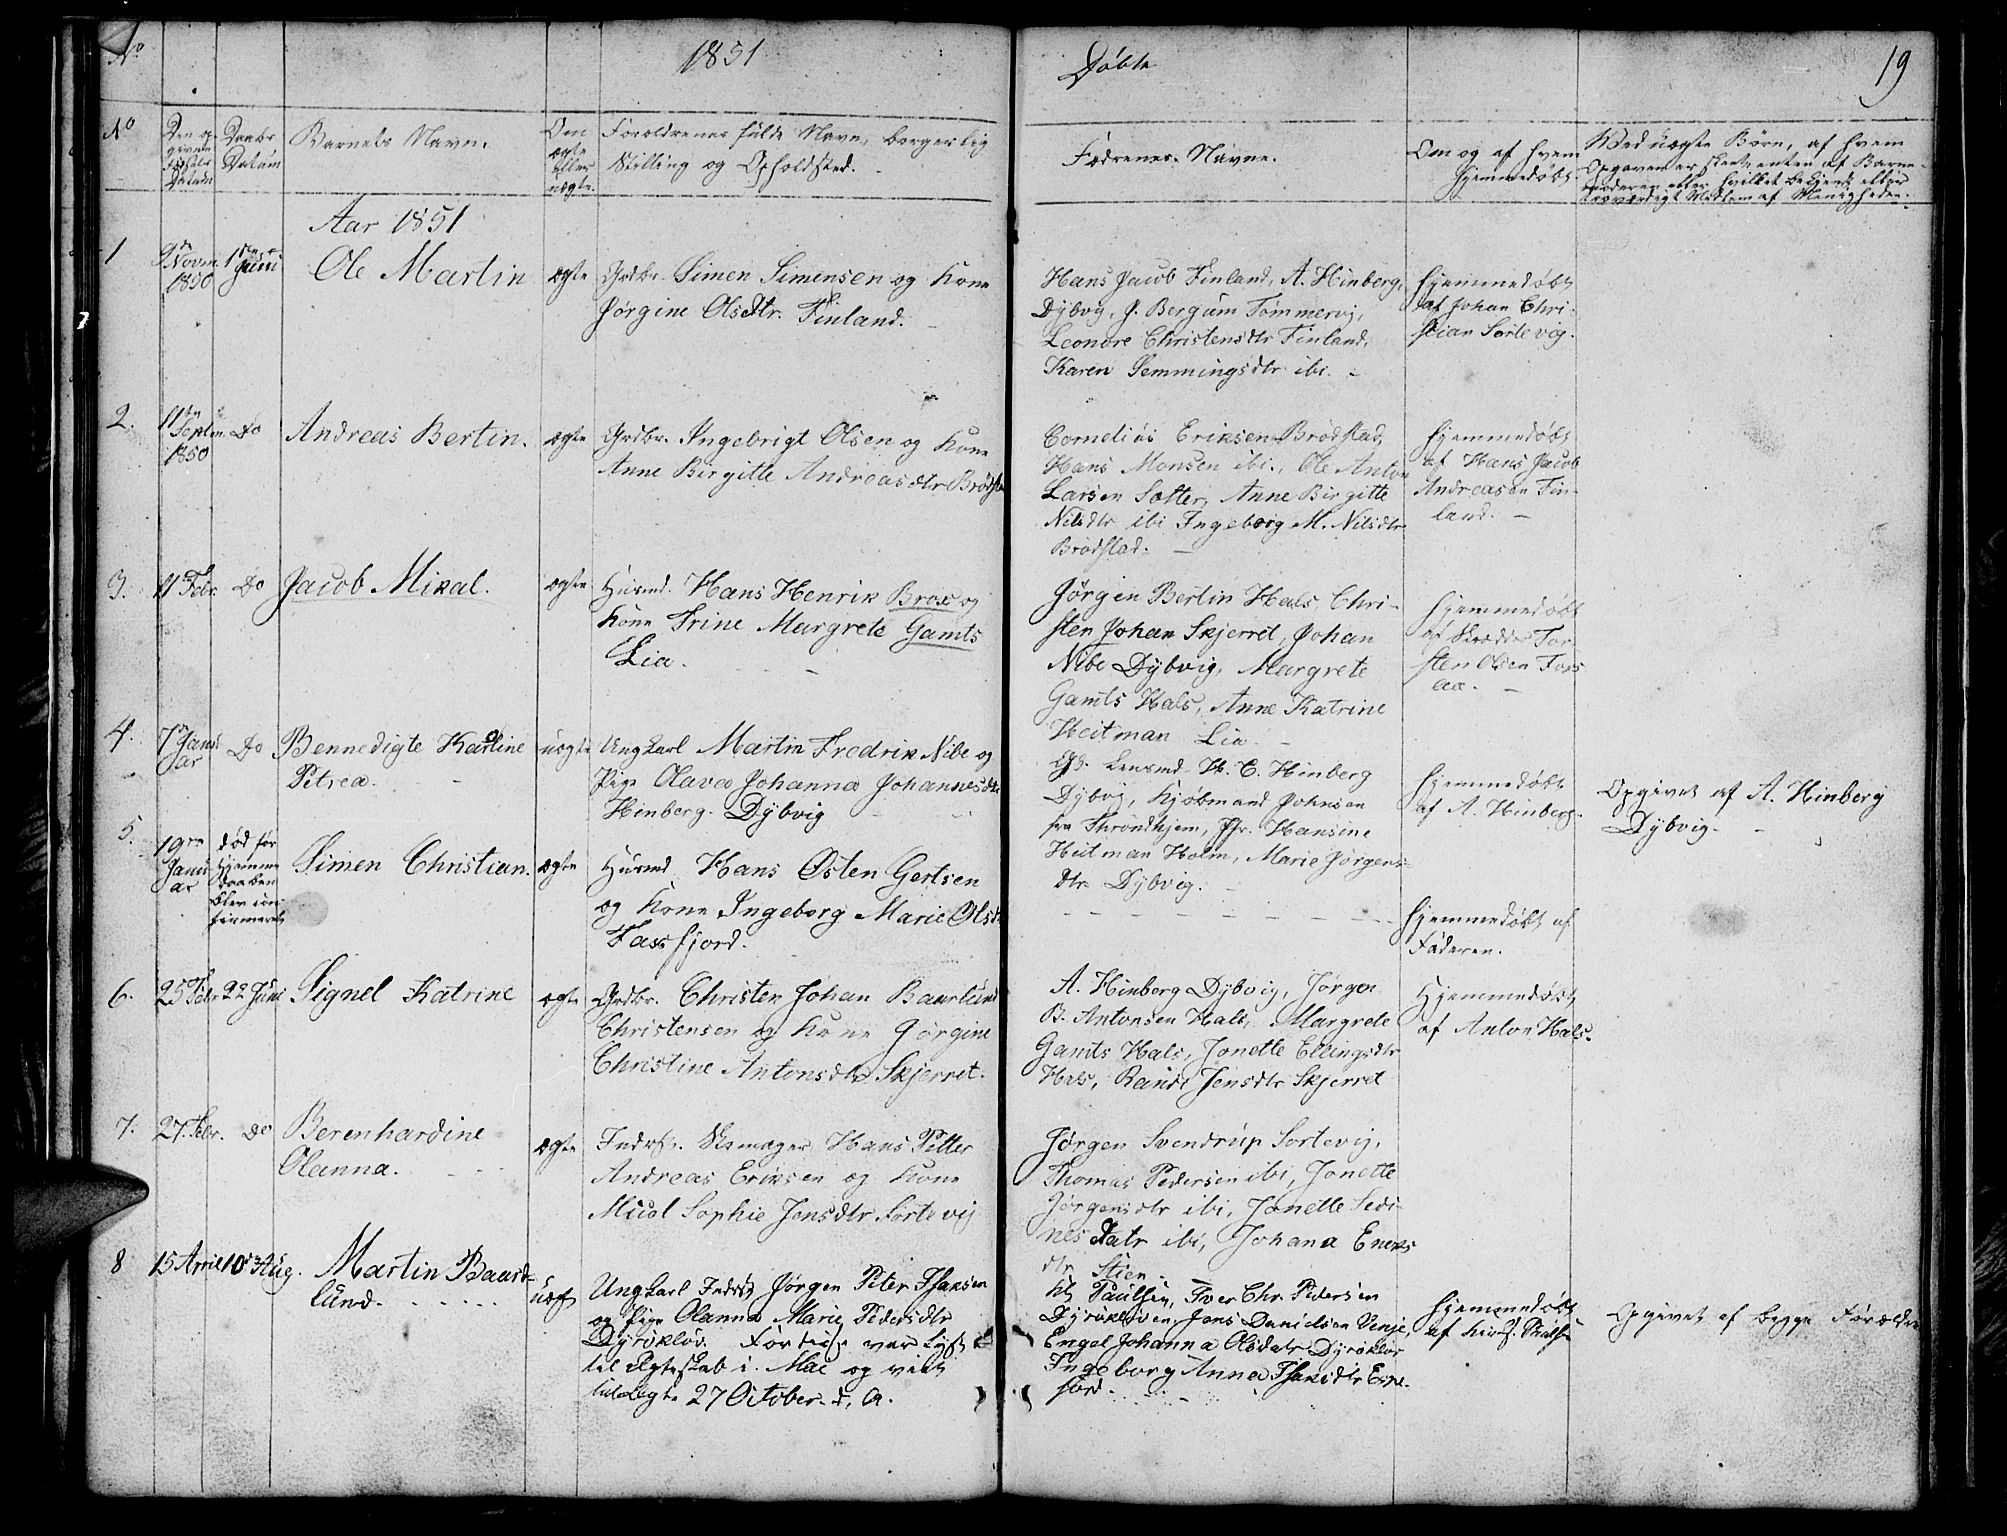 No
1851
Døbte
19
No
Den opgiven Fødsels Datum
Daabs Datum
Barnets Navn.
Om ægte eller uægte.
Forældrenes fulde Navn, borgerlig
Stilling og Opholdsted.
Fædrenes Navne.
Om og af hvem
hjemmedøbt
Ved uægte Børn, af hvem
Opgaven er skeet, enten af Barne-
moderen eller hvilket bekjendt eller
troværdigt Medlem af Menigheden.
Aar 1851
1
9 Novm. 1850
1ste Juni
Ole Martin
ægte
Grdbr. Simen Simensen og Kone
Jørgine Olsdtr. Finland.
Hans Jacob Finland, A. Hinberg,
Dybvig, J. Bergum Tømmervi,
Leonore Christensdtr Finland,
Karen Hemmingsdtr ibi.
Hjemmedøbt
af Johan Chri-
stian Sortevig.
2.
11 Septm. 1850
Do
Andreas Bertin.
ægte
Grdbr. Ingebrigt Olsen og Kone
Anne Birgitte Andreasdtr Brødst
Cornelius Eriksen Brodstad,
Hans Monsen ibi., Ole Anton
Larsen Sætter, Anne Birgitte
Nilsdtr ibi Ingeborg M. Nilsdtr
Brodstad.
Hjemmedøbt
af Hans Jacob
Andreasen Fin-
land.
3.
11 Febr.
Do
Jacob Mikal.
ægte
Husmd. Hans Henrik Brox og
Kone Trine Margrete Gamts
Lia.
Jørgen Bertin Hals, Chri-
sten Johan Skjerret, Johan
Nibe Dybvig, Margrete
Gamts Hals, Anne Katrine
Heitman Lia.
Hjemmedøbt
af Skrædder Tor-
sten Olsen Fors
aa.
4.
7 Januar
Do
Bennedigte Karoline
Petrea.
uægte
Ungkarl Martin Fredrik Nibe og
Pige Olava Johanna Johannesdtr
Hinberg. Dybvig
Lensmd H. C. Hinberg
Dybvig, Kjøbmand Johnsen
fra Throndhjem, Jfr. Hansine
Heitman Holm, Marie Jørgens-
dtr Dybvig.
Hjemmedøbt
af A. Hinberg.
Opgivet af A. Hinberg
Dybvig.
5.
19 Januar
død før
hjemme
daaben
blev con
firmeret
Simen Christian.
ægte
Husmd Hans Østen Gertsen
og Kone Ingeborg Marie Olsd
Faxfjord.
Hjemmedøbt af
Faderen.
6.
25 Febr
22 Juni
Signel Katrine
ægte
Grdbr. Christen Johan Baarlund
Christensen og Kone Jørgine
Christine Antonsdtr Skjerret.
A. Hinberg Dybvig, Jørgen
B. Antonsen Hals, Margrete
Gamts Hals, Jonette Ellingsdtr
Hals, Randi Jensdtr Skjerret
Hjemmedøbt
af Anton Hals.
7.
27. Febr.
Do
Berenhardine
Olanna.
ægte
Inderst. Skomager Hans Petter
Andreas Eriksen og Kone
Sophie Jensdtr Sortevig
Jørgen Svendrup Sortevig,
Thomas Pedersen ibi, Jonette
Jørgensdtr ibi, Jonette Sedi-
nes Datr ibi, Johana Eneks
dtr Stien.
8
15 April
10 Aug.
Martin Baard-
lund.
uægt
Ungkarl Inderst Jørgen Peter Isaksen
og Pige Olanna Marie Pedersdtr
Dyrøkløv. Fortiden var lyst
til Ægteskab i Mai og viet
27 October d. A.
Paulsen, Iver Chr. Pedersen
Dyrøkløven, Jens Danielsen Venje,
Engel Johanna Olsdatr Dyrøklov
Ingeborg Anna Isaksdtr Espe-
fjord.
Hjemmedøbt
af
Opgivet af begge Forældre